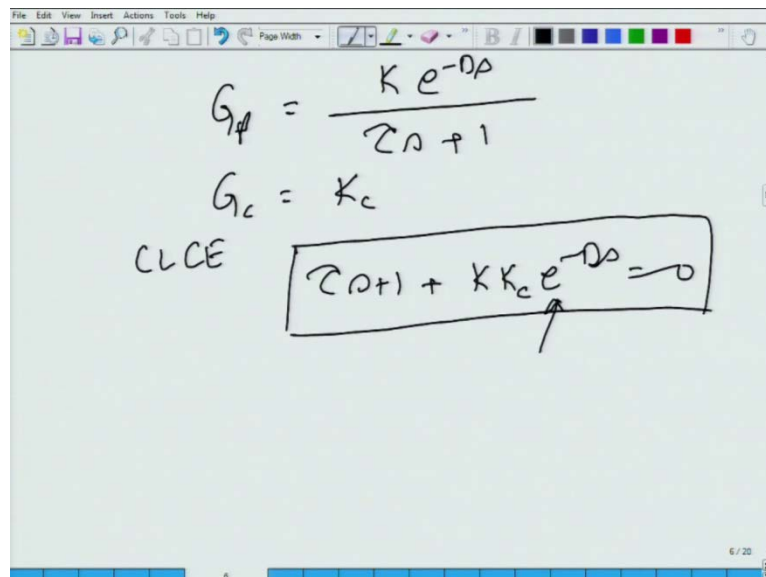 File Edit View Insert Actions Tools Help
Page Width
B I
Gp = K e^-Ds / τs + 1
Gc = Kc
CLCE τs+1 + KKc e^-Ds = 0
6 / 20
6